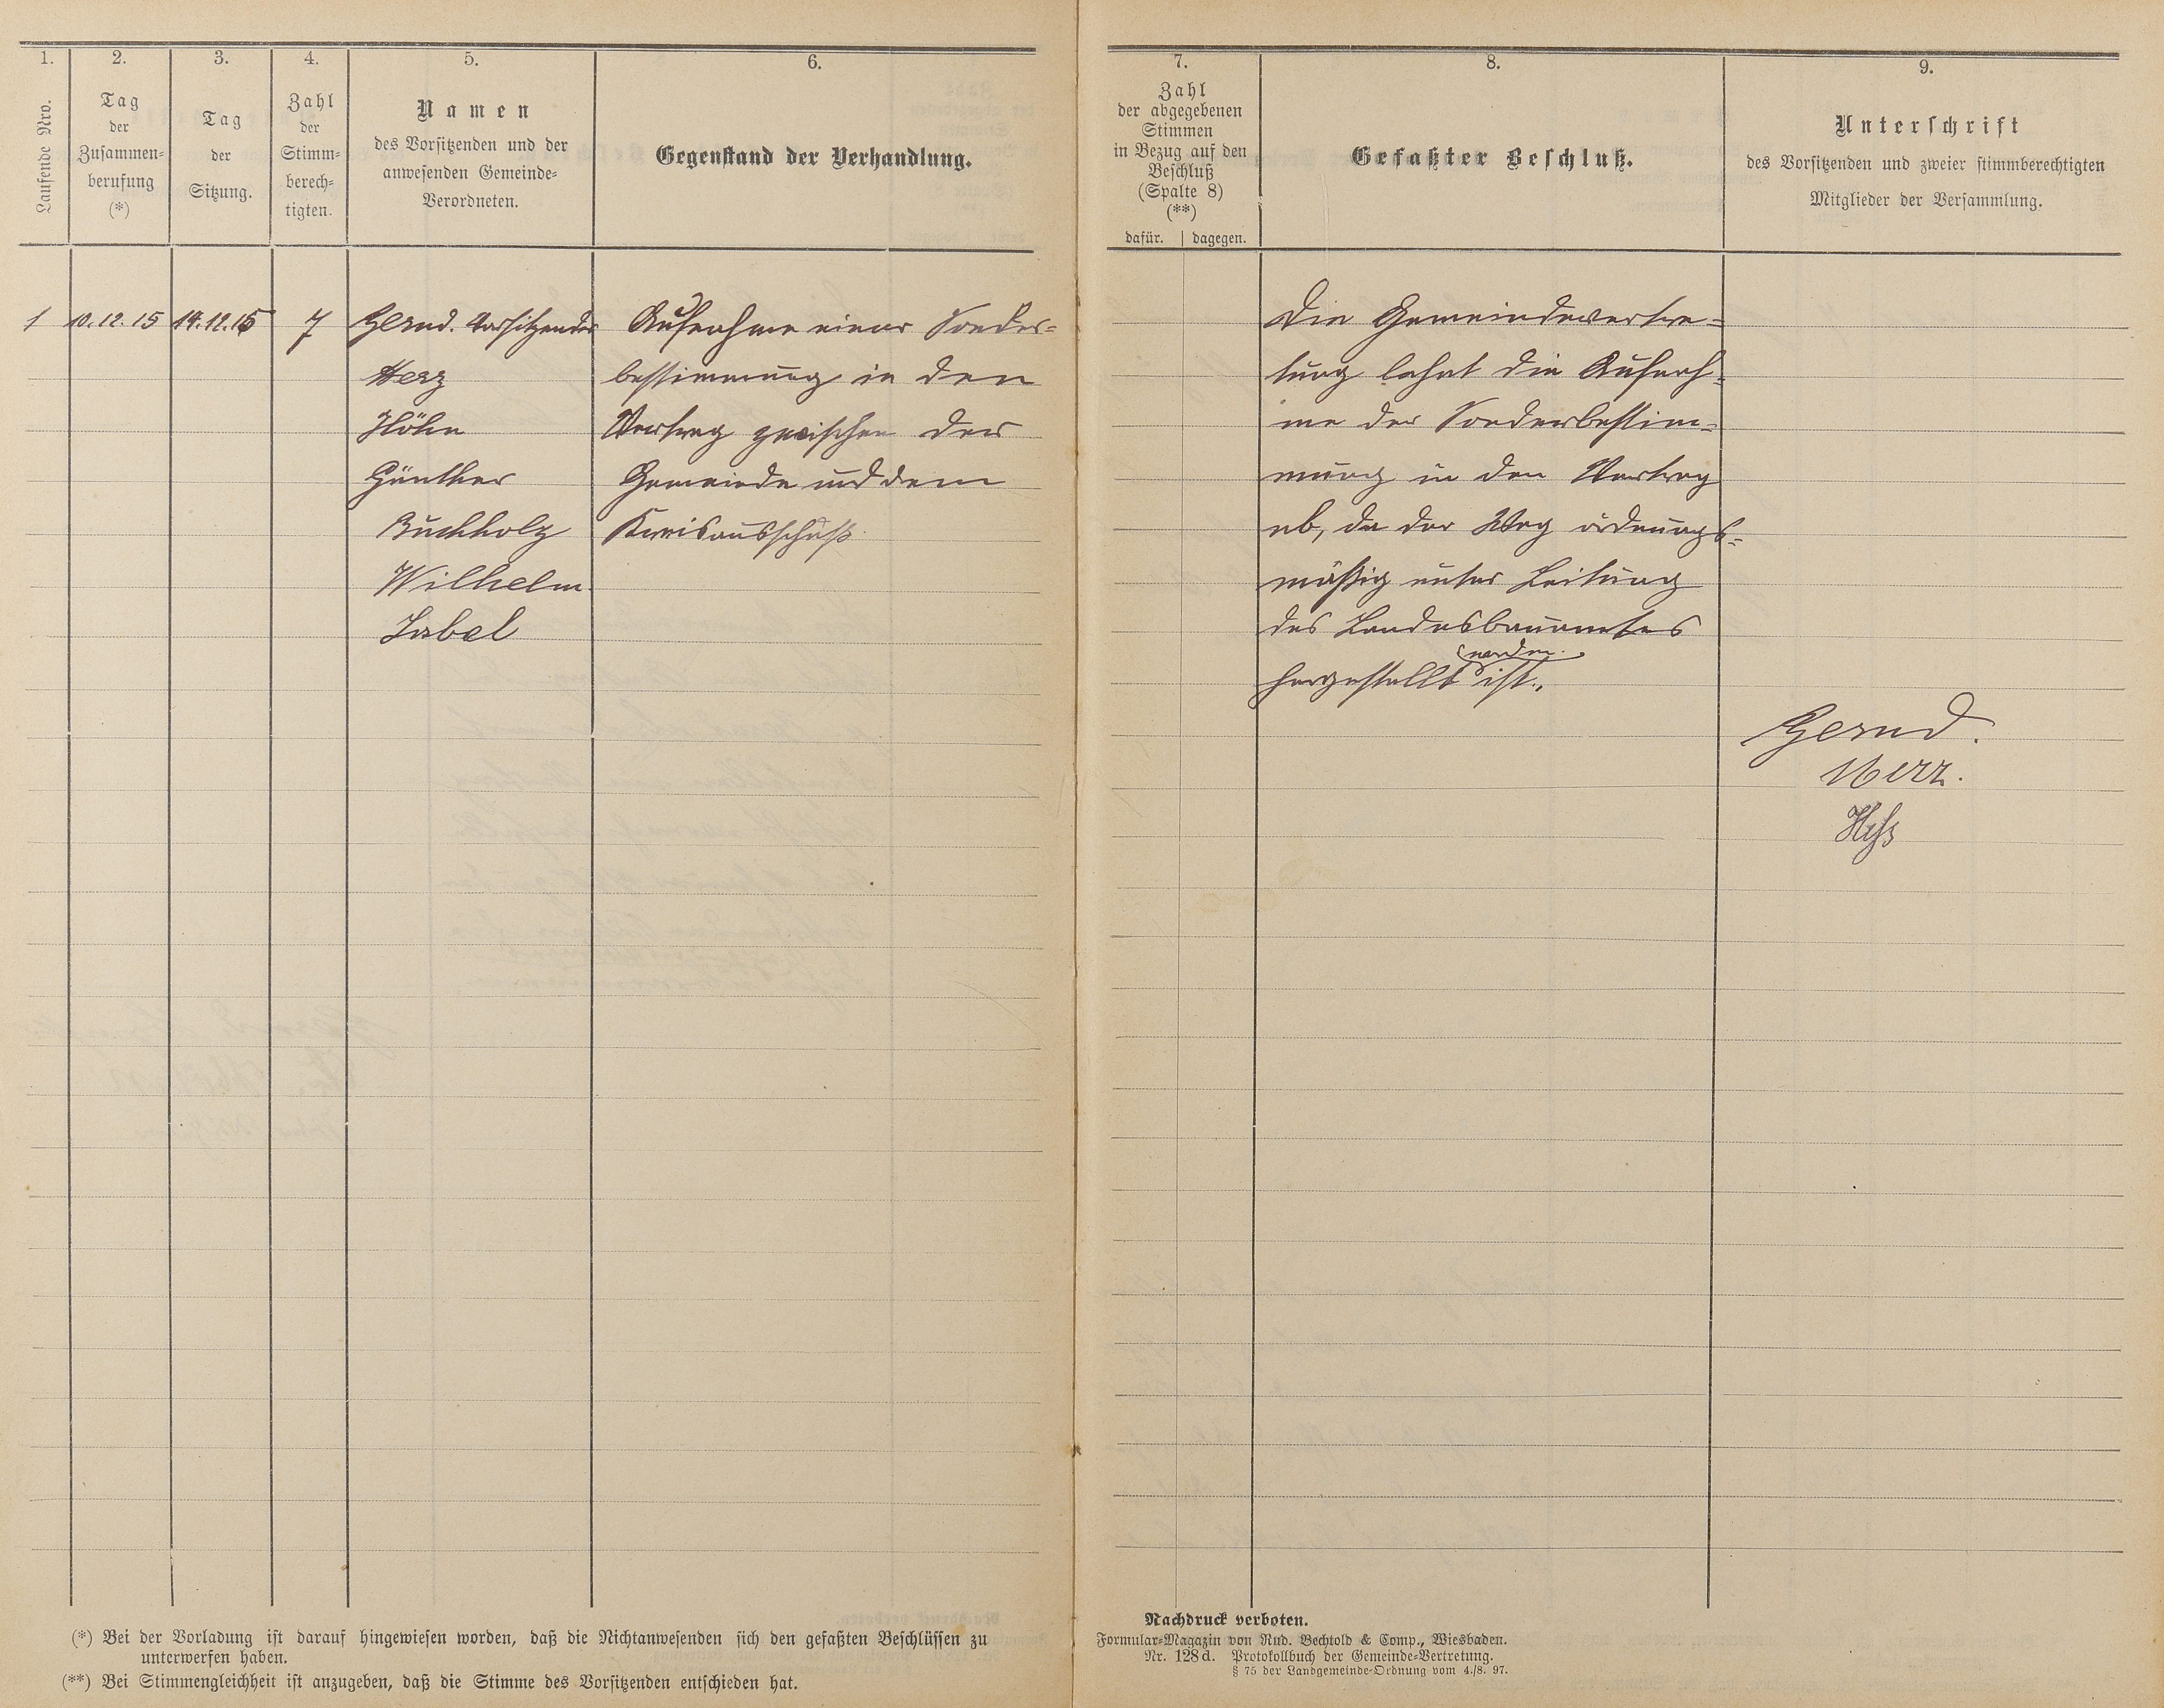 1.
2.
3.
4.
5.
6.
Laufende Nro.
Tag
der
Zusammen-
berufung
(*)
Tag
der
Sitzung.
Zahl
der
Stimm-
berech-
tigten.
Namen
des Vorsitzenden und der
anwesenden Gemeinde-
Verordneten.
Gegenstand der Verhandlung.
1 10.12.15 14.12.15 7 Gernd. Vorsitzender Aufnahme einer Sonder-
Herz bestimmung in den
Höhn Vertrag zwischen der
Günther Gemeinde und dem
Buchholz Kreisausschuß
Wilhelm
Isabel
(*) Bei der Vorladung ist darauf hingewiesen worden, daß die Nichtanwesenden sich den gefaßten Beschlüssen zu
unterwerfen haben.
(**) Bei Stimmengleichheit ist anzugeben, daß die Stimme des Vorsitzenden entschieden hat.
7.
8.
9.
Zahl
der abgegebenen
Stimmen
in Bezug auf den
Beschluß
(Spalte 8)
(**)
dafür. | dagegen.
Gefaßter Beschluß.
Unterschrift
des Vorsitzenden und zweier stimmberechtigten
Mitglieder der Versammlung.
Die Gemeindevertre-
tung lehnt die Aufnah-
me der Sonderbestim-
mung in den Vertrag
ab, da der Weg ordnungs-
mäßig unter Leitung
des Landesbauamtes
worden
hergestellt ist.
Gernd.
Herz.
Heß
Nachdruck verboten.
Formular-Magazin von Rud. Bechtold & Comp., Wiesbaden.
Nr. 128d. Protokollbuch der Gemeinde-Vertretung.
§ 75 der Landgemeinde-Ordnung vom 4./8. 97.